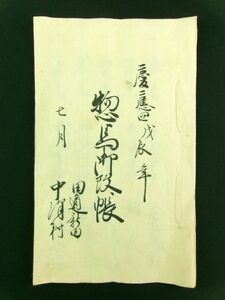 慶應四戊辰年
惣馬御改帳
七月
田通新田
中須村